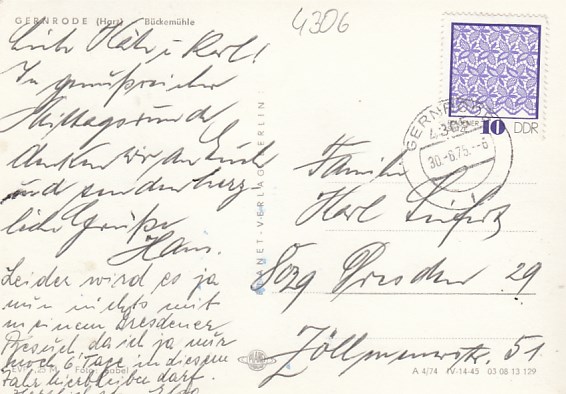 GERNRODE (Harz) Bückemühle
4306
Liebe Käte u. Karl!
In genußreicher
Mittagsrunde
denken wir an Euch
und senden herz-
liche Grüße
Hans.
Leider wird es ja
nun nichts mit
meinem Dresdener
Besuch, da ich ja nur
noch 6 Tage in diesem
Jahr hierbleiben darf.
Herzlichst
EVP -,25 M Foto:
PLANET-VERLAG BERLIN
PLANET
10 DDR
GERNRODE
4306
30.-6.75.--6
Familie
Karl
8029 Dresden 29
Zöllmenerstr. 51
A 4/74 IV-14-45 03 08 13 129